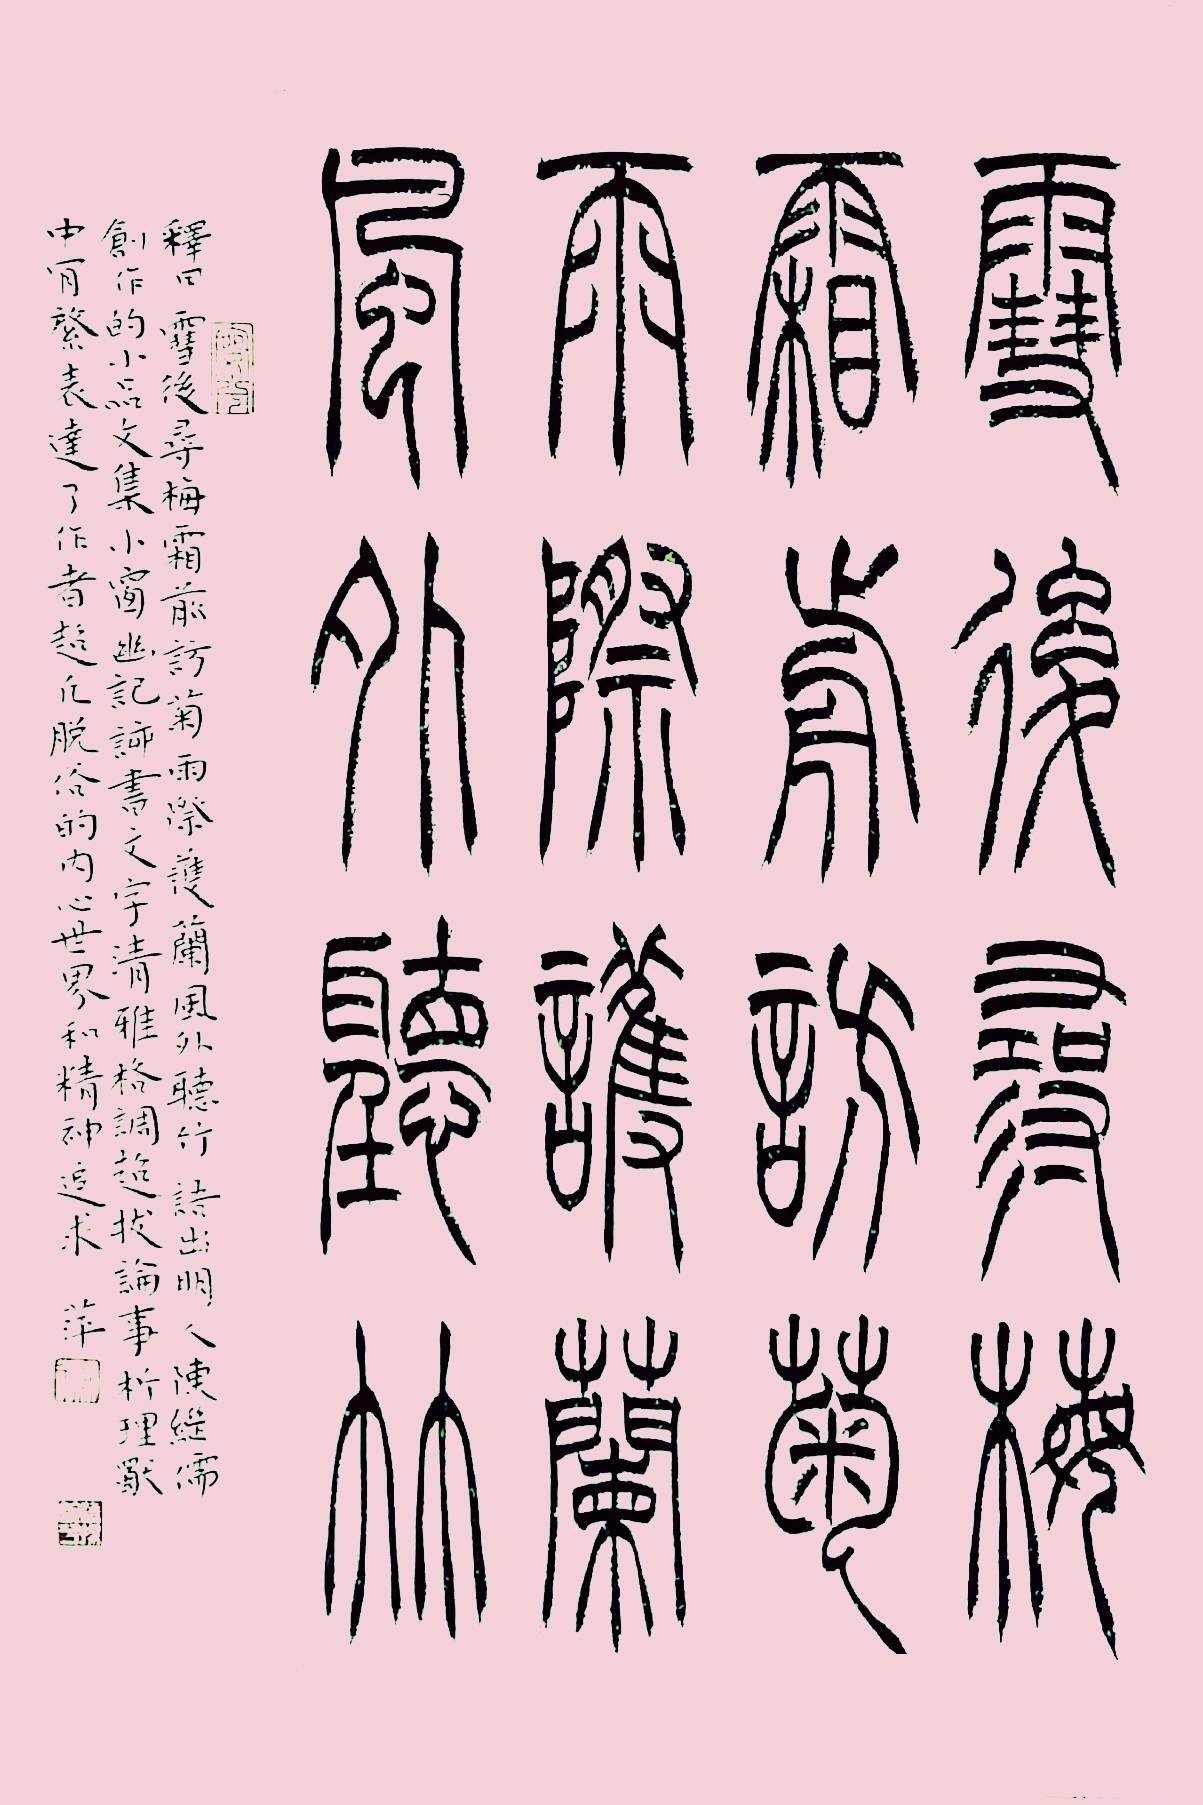 雪後尋梅
霜前訪菊
雨際護蘭
風外聽竹
釋曰雪後尋梅霜前訪菊雨際護蘭風外聽竹 詩出明人陳繼儒
創作的小品文集小窗幽記 書文字清雅格調超拔論事析理
中肯 表達了作者超凡脫俗的内心世界和精神追求 萍